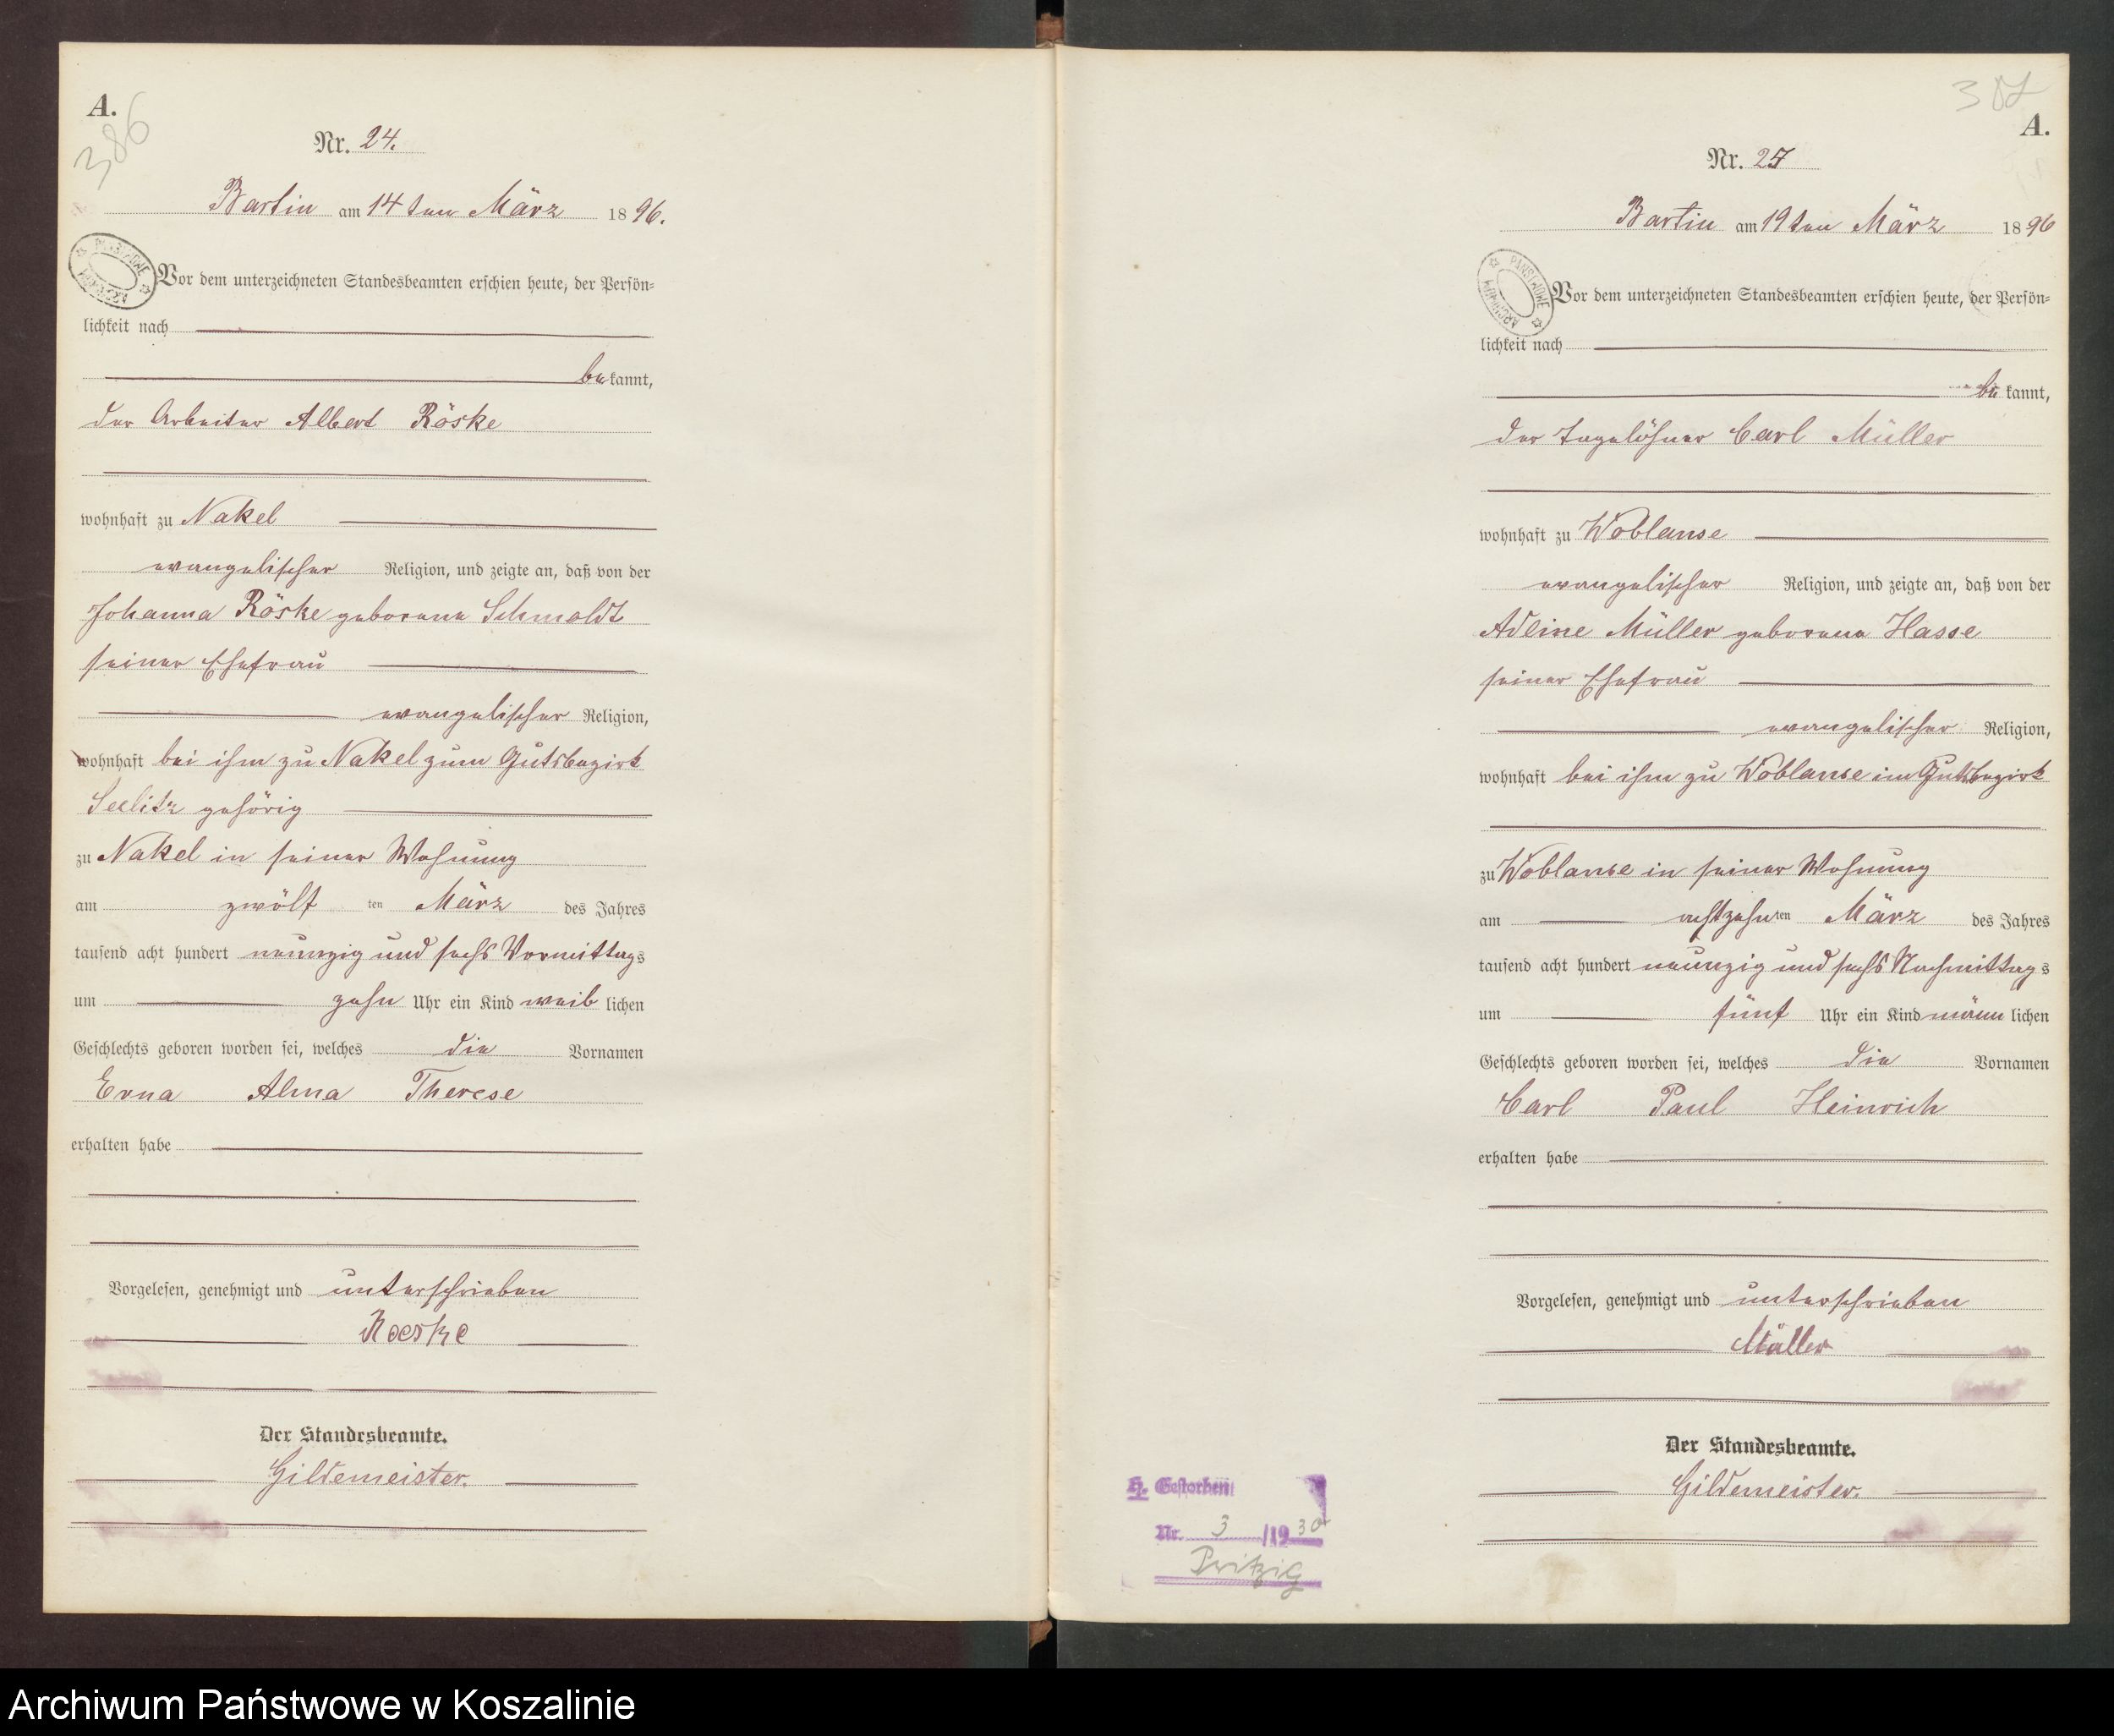 A.
386
Nr. 24.
Bartin am 14ten März 1896.
PAŃSTWOWE ARCHIWUM
Vor dem unterzeichneten Standesbeamten erschien heute, der Persön-
lichkeit nach
bekannt,
der Arbeiter Albert Röske
wohnhaft zu Nakel
evangelischer Religion, und zeigte an, daß von der
Johanna Röske geborene Schmoldt
seiner Ehefrau
evangelischer Religion,
wohnhaft bei ihm zu Nakel zum Gutsbezirk
Seelitz gehörig
zu Nakel in seiner Wohnung
am zwölf ten März des Jahres
tausend acht hundert neunzig und sechs Vormittags
um zehn Uhr ein Kind weiblichen
Geschlechts geboren worden sei, welches die Vornamen
Erna Alma Therese
erhalten habe
Vorgelesen, genehmigt und unterschrieben
Roeske
Der Standesbeamte.
Gildemeister.
A.
Nr. 25
Bartin am 19ten März 1896
PAŃSTWOWE ARCHIWUM
Vor dem unterzeichneten Standesbeamten erschien heute, der Persön-
lichkeit nach
bekannt,
der Tagelöhner Carl Müller
wohnhaft zu Woblanse
evangelischer Religion, und zeigte an, daß von der
Adeline Müller geborene Hasse
seiner Ehefrau
evangelischer Religion,
wohnhaft bei ihm zu Woblanse im Gutsbezirk
zu Woblanse in seiner Wohnung
am achtzehn ten März des Jahres
tausend acht hundert neunzig und sechs Nachmittags
um fünf Uhr ein Kind männlichen
Geschlechts geboren worden sei, welches die Vornamen
Carl Paul Heinrich
erhalten habe
Vorgelesen, genehmigt und unterschrieben
Müller
Der Standesbeamte.
Gildemeister.
H. Gestorben
Nr. 3 /1930
Pritzig
Archiwum Państwowe w Koszalinie